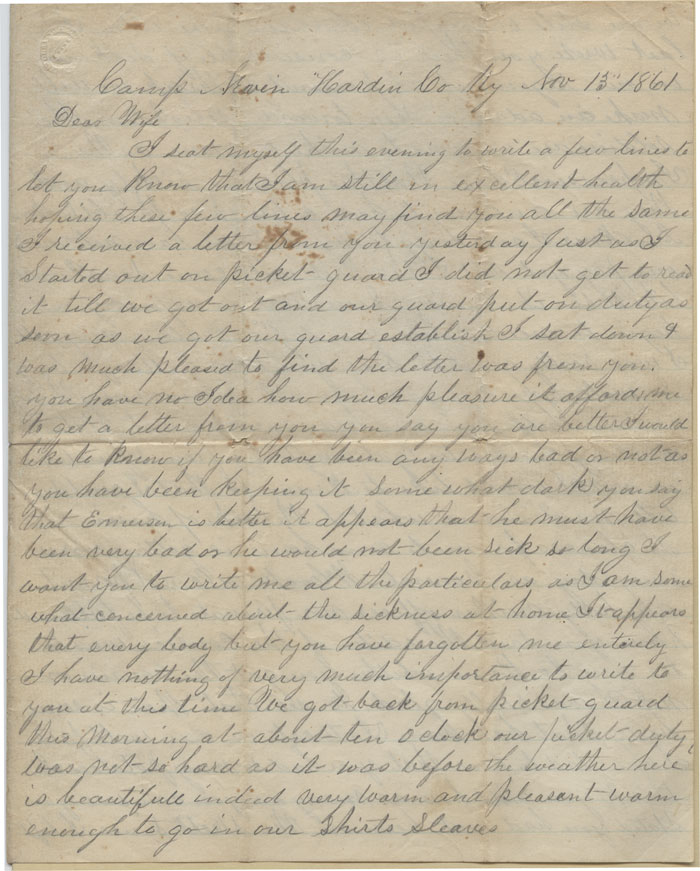 Camp Nevin Hardin Co Ky Nov 13" 1861
Dear Wife
I seat myself this evening to write a few lines to
let you Know that I am still in excellent health
hoping these few lines may find you all the same
I received a letter from you yesterday Just as I
Started out on picket guard I did not get to read
it till we got out and our guard put on duty as
soon as we got our guard establish I sat down &
was much pleasd to find the letter was from you.
you have no Idea how much pleasure it affords me
to get a letter from you you say you are better I would
like to Know if you have been any ways bad or not as
you have been Keeping it Some what dark you say
that Emerson is better it appears that he must have
been very bad or he would not been sick so long I
want you to write me all the particulars as I am some
what concerned about the sickness at home It appears
that every body but you have forgotten me entirely
I have nothing of very much importance to write to
you at this time We got back from picket guard
this Morning at about ten Oclock our picket duty
was not so hard as it was before the weather here
is beautifull indeed very warm and pleasent warm
enough to go in our Shirts Sleaves